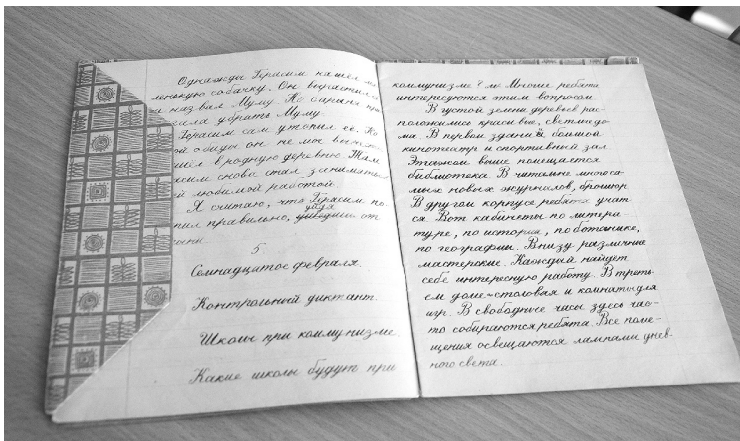 Однажды Герасим нашёл ма
ленькую собачку. Он вырастил
назвал Муму. Но барыня при
убрать Муму.
Герасим сам утопил её. Но
обиды он не мог
в родную деревню. Там
снова стал заниматься
любимой работой.
Я считаю, что Герасим по-
пил правильно, уйдя от
5
Семнадцатое февраля.
Контрольный диктант.
Школы при коммунизме.
Какие школы будут при
коммунизме? Многие ребята
интересуются этим вопросом.
В густой зелени деревьев рас-
положились красивые, светлые до-
ма. В первом здании большой
кинотеатр и спортивный зал.
Этажом выше помещается
библиотека. В читальне много са-
мых новых журналов, брошюр.
В другом корпусе ребята учат
ся. Вот кабинеты по литера-
туре, по истории, по ботанике,
по географии. Внизу различные
мастерские. Каждый найдут
себе интересную работу. В треть-
ем доме-столовая и комнаты для
игр. В свободные часы здесь час-
то собираются ребята. Все поме-
щения освещаются лампами днев-
ного света.